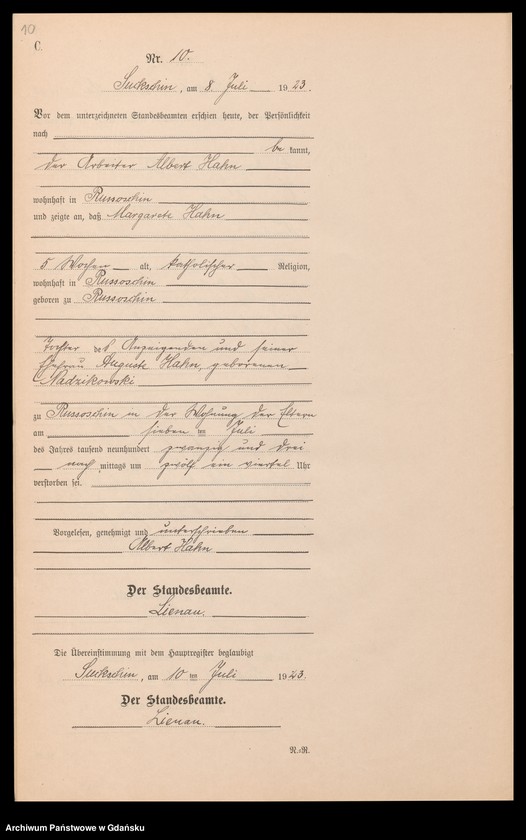 10
C.
Nr. 10.
Suckschin, am 8. Juli 1923.
Vor dem unterzeichneten Standesbeamten erschien heute, der Persönlichkeit
nach
be kannt,
der Arbeiter Albert Hahn
wohnhaft in Russoschin
und zeigte an, daß Margarete Hahn
5 Wochen alt, katholischer Religion,
wohnhaft in Russoschin
geboren zu Russoschin
Tochter des Anzeigenden und seiner
Ehefrau Auguste Hahn, geborenen
Nadzikowski
zu Russoschin in der Wohnung der Eltern
am sieben ten Juli
des Jahres tausend neunhundert zwanzig und drei
nach mittags um zwölf ein viertel Uhr
verstorben sei.
Vorgelesen, genehmigt und unterschrieben
Albert Hahn
Der Standesbeamte.
Lienau.
Die Übereinstimmung mit dem Hauptregister beglaubigt
Suckschin, am 10 ten Juli 1923.
Der Standesbeamte.
Lienau.
N.-R.
Archiwum Państwowe w Gdańsku